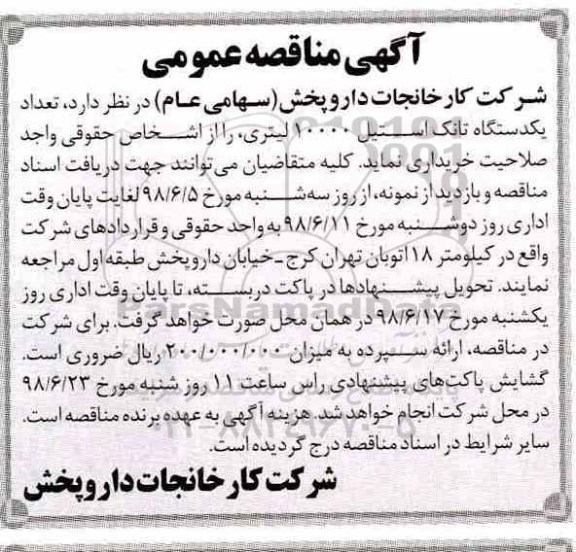 آگهی مناقصه عمومی
شرکت کارخانجات داروپخش (سهامی عام) در نظر دارد، تعداد
یکدستگاه تانک استیل ۱۰۰۰۰ لیتری، را از اشخاص حقوقی واجد
صلاحیت خریداری نماید. کلیه متقاضیان می‌توانند جهت دریافت اسناد
مناقصه و بازدید از نمونه، از روز سه‌شنبه مورخ ۹۸/۶/۵ لغایت پایان وقت
اداری روز دوشنبه مورخ ۹۸/۶/۱۱ به واحد حقوقی و قراردادهای شرکت
واقع در کیلومتر ۱۸ اتوبان تهران کرج -خیابان داروپخش طبقه اول مراجعه
نمایند. تحویل پیشنهادها در پاکت دربسته، تا پایان وقت اداری روز
یکشنبه مورخ ۹۸/۶/۱۷ در همان محل صورت خواهد گرفت. برای شرکت
در مناقصه، ارائه سپرده به میزان ۲۰۰/۰۰۰/۰۰۰ ریال ضروری است.
گشایش پاکت‌های پیشنهادی راس ساعت ۱۱ روز شنبه مورخ ۹۸/۶/۲۳
در محل شرکت انجام خواهد شد. هزینه آگهی به عهده برنده مناقصه است.
سایر شرایط در اسناد مناقصه درج گردیده است.
شرکت کارخانجات داروپخش